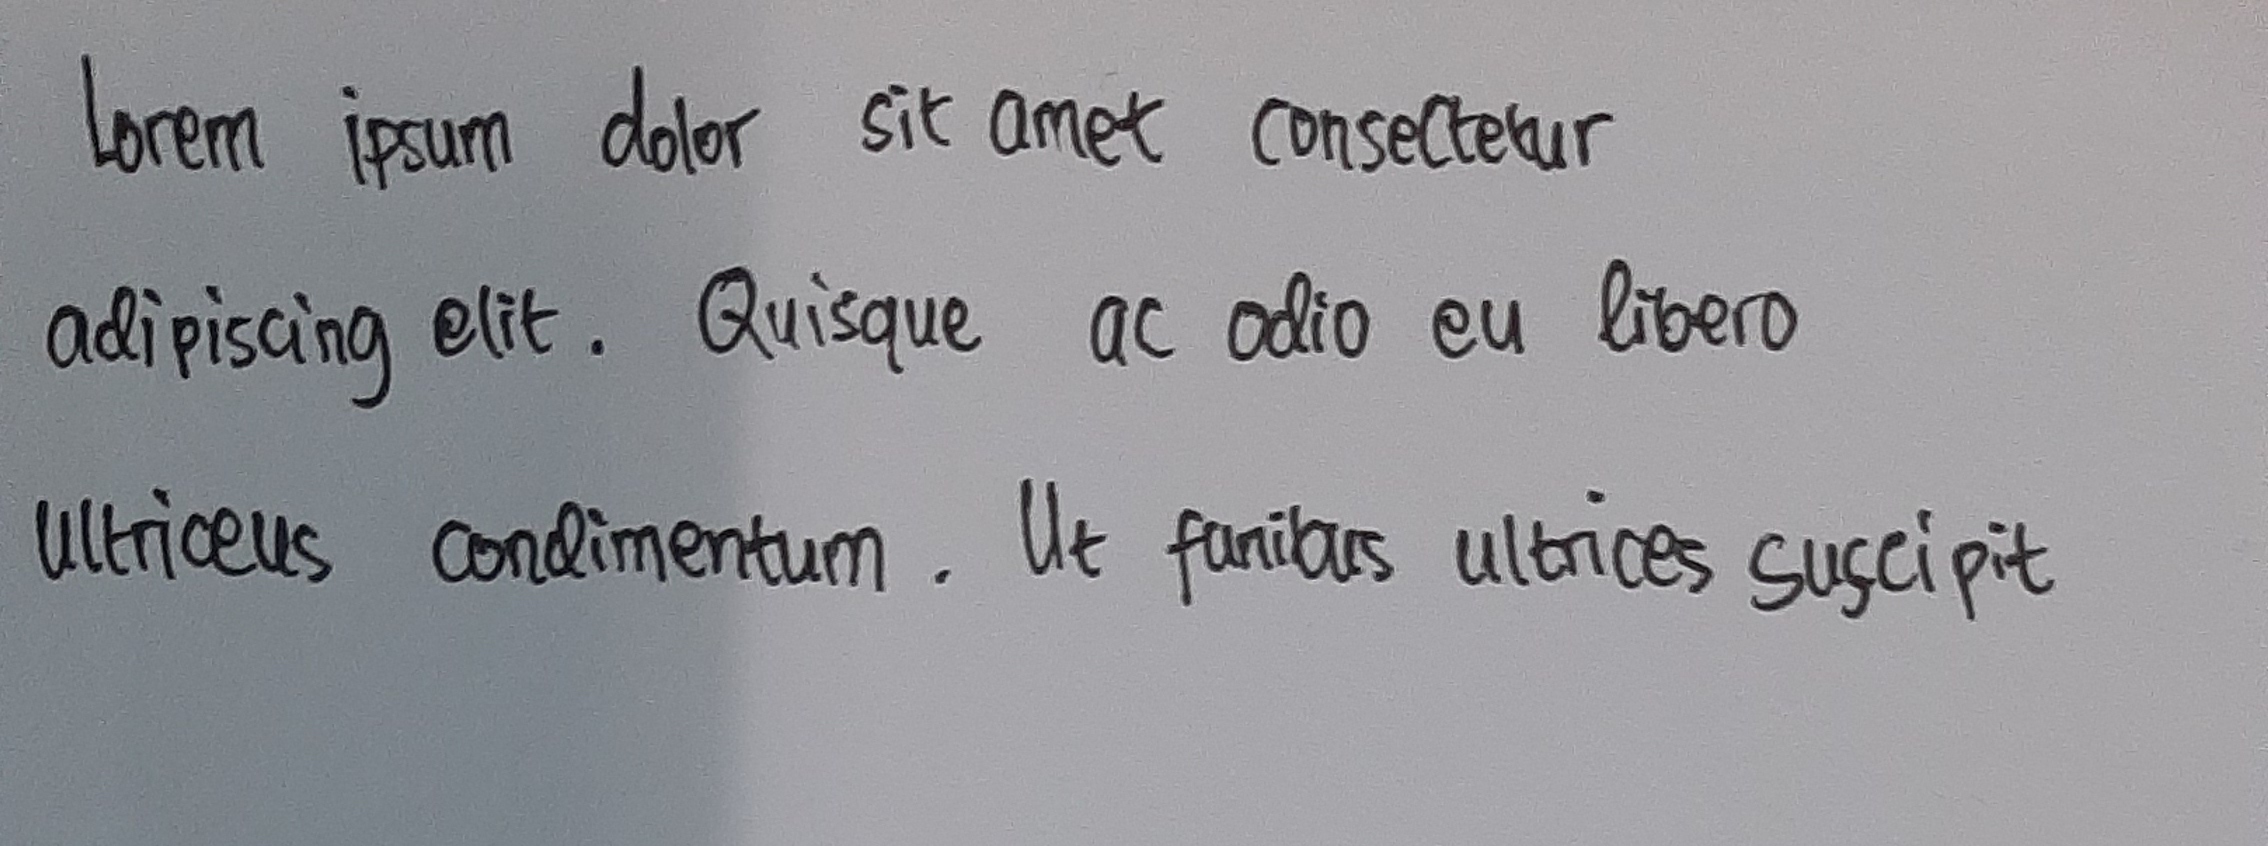 Lorem ipsum dolor sit amet consectetur
adipiscing elit. Quisque ac odio eu libero
ultriceus condimentum. Ut fanibus ultrices suscipit